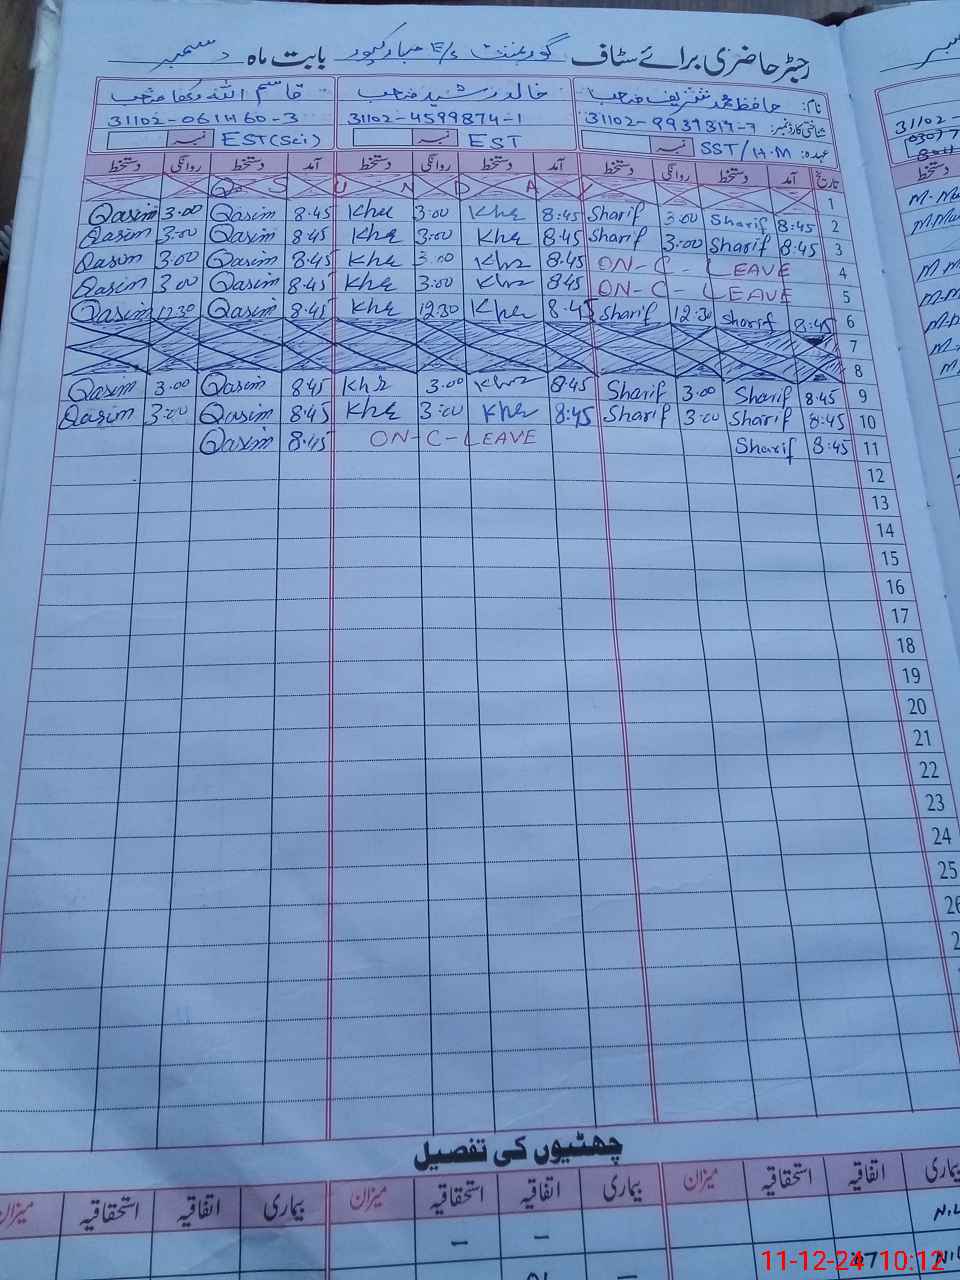 رجسٹر حاضری برائے سٹاف گورنمنٹ E/S مبارکپور بابت ماہ دسمبر
نام: حافظ محمد شریف صاحب خالد رشید صاحب قاسم اللہ صاحب
شناختی کارڈ نمبر: 31102-4599874-1
عہدہ: SST/H.M نمبر EST نمبر EST(Sci) نمبر
تاریخ آمد دستخط روانگی دستخط آمد دستخط روانگی دستخط آمد دستخط روانگی دستخط
1 SUNDAY
2 8:45 Sharif 3:00 Sharif 8:45 Kha 3:00 Kha 8.45 Qasim 3:00 Qasim
3 8:45 Sharif 3:00 Sharif 8:45 Kha 3:00 Kha 8.45 Qasim 3:00 Qasim
4 ON-C-LEAVE 8:45 Kha 3:00 Kha 8.45 Qasim 3:00 Qasim
5 ON-C-LEAVE 8:45 Kha 3:00 Kha 8.45 Qasim 3:00 Qasim
6 8:45 Sharif 12:30 Sharif 8:45 Kha 12:30 Kha 8.45 Qasim 12:30 Qasim
7
8
9 8:45 Sharif 3:00 Sharif 8:45 Kha 3:00 Kha 8.45 Qasim 3:00 Qasim
10 8:45 Sharif 3:00 Sharif 8:45 Kha 3:00 Kha 8.45 Qasim 3:00 Qasim
11 8:45 Sharif ON-C-LEAVE 8.45 Qasim
12
13
14
15
16
17
18
19
20
21
22
23
24
25
26
چھٹیوں کی تفصیل
بیماری اتفاقیہ استحقاقیہ میزان بیماری اتفاقیہ استحقاقیہ میزان بیماری اتفاقیہ استحقاقیہ میزان
11-12-24 10:12